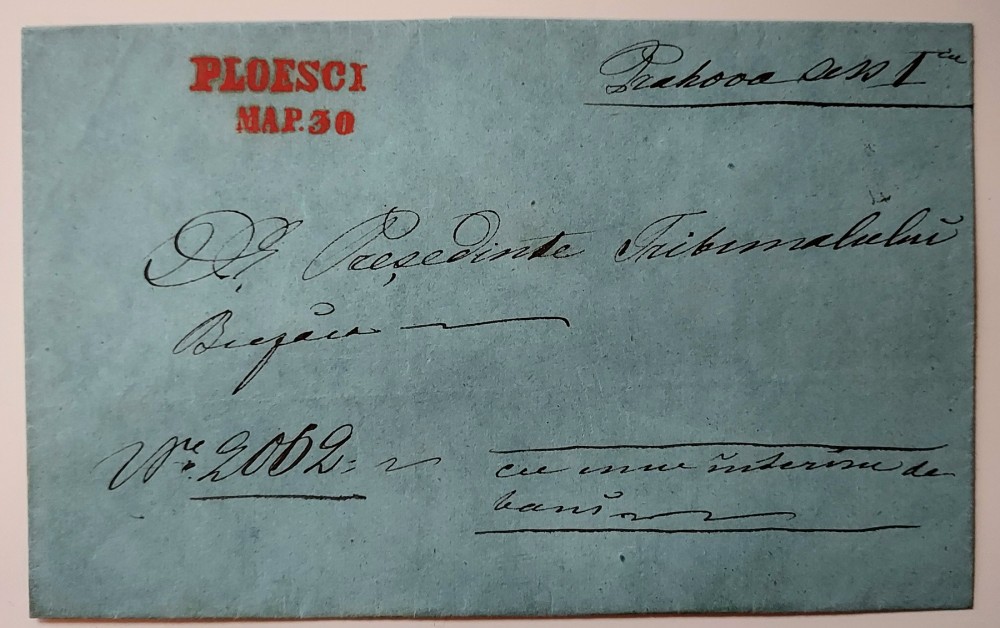 PLOESCI
MAP. 30
Prahova Sess I
D.S. Preşedinte Tribunalulŭi
Buzĕu
Nre. 2062
cu unu interimu de
banĭ